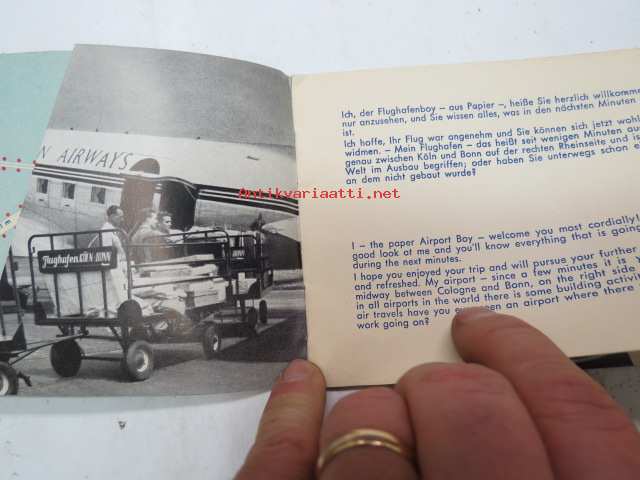 N AIRWAYS
Flughafen KÖLN-BONN
Antikvariaatti.net
Ich, der Flughafenboy – aus Papier –, heiße Sie herzlich willkomme
nur anzusehen, und Sie wissen alles, was in den nächsten Minuten
ist.
Ich hoffe, Ihr Flug war angenehm und Sie können sich jetzt wohl
widmen. – Mein Flughafen – das heißt seit wenigen Minuten au
genau zwischen Köln und Bonn auf der rechten Rheinseite und is
Welt im Ausbau begriffen; oder haben Sie unterwegs schon e
an dem nicht gebaut wurde?
I – the paper Airport Boy – welcome you most cordially!
good look at me and you'll know everything that is going
during the next minutes.
I hope you enjoyed your trip and will pursue your further
and refreshed. My airport – since a few minutes is y
midway between Cologne and Bonn, on the right side
in all airports in the world there is some building activi
air travels have you an airport where there
work going on?